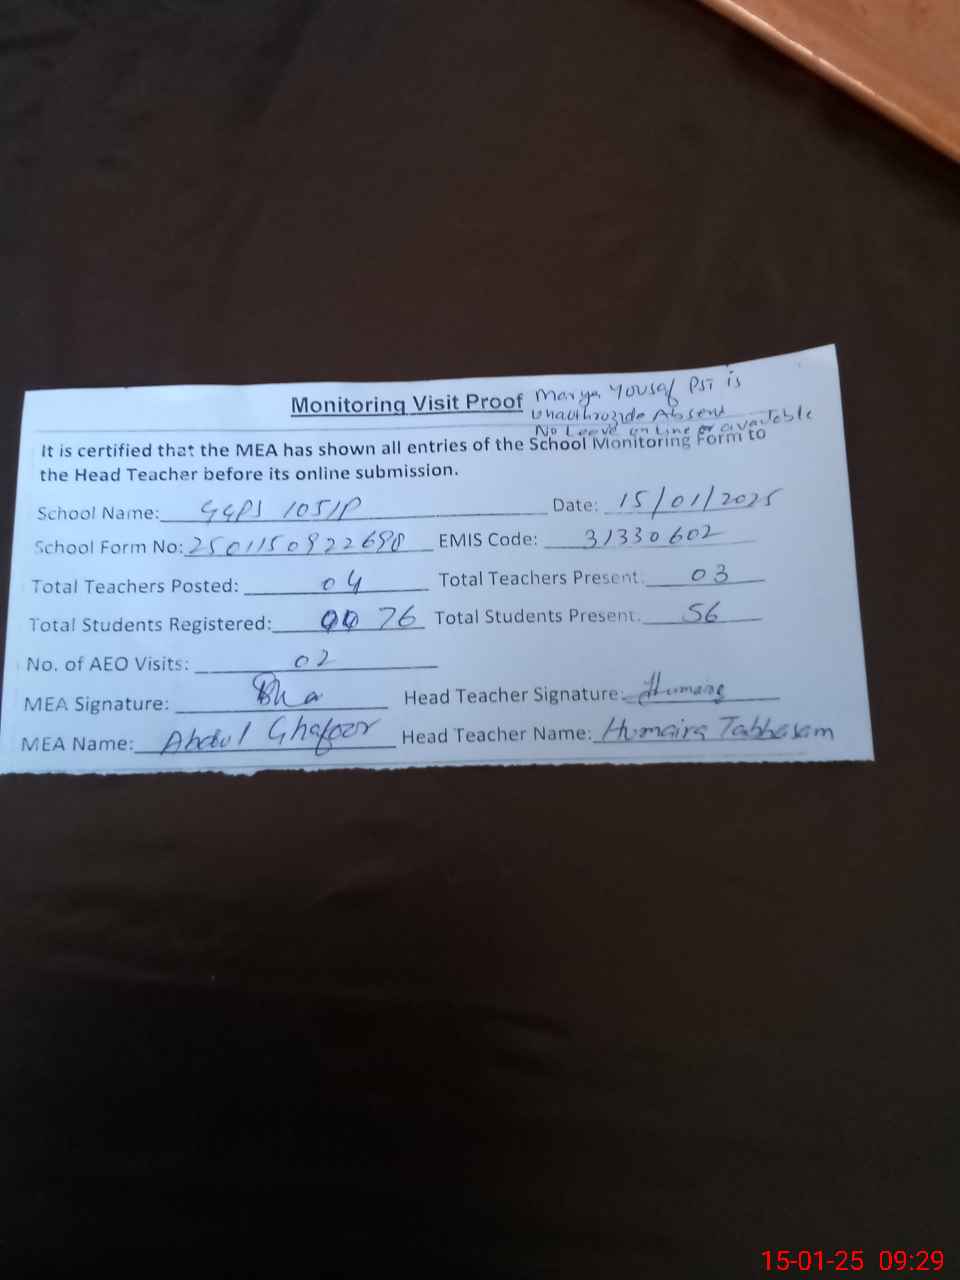 Monitoring Visit Proof
Marya Yousaf PST is
Unauthrozide Absent
No Leave on Line or available
It is certified that the MEA has shown all entries of the School Monitoring Form to
the Head Teacher before its online submission.
School Name: GGPS 105/P Date: 15/01/2025
School Form No: 2501150922698 EMIS Code: 31330602
Total Teachers Posted: 04 Total Teachers Present: 03
Total Students Registered: 76 Total Students Present: 56
No. of AEO Visits: 02
MEA Signature: Head Teacher Signature: Humaira
MEA Name: Abdul Ghafoor Head Teacher Name: Humaira Tabbasam
15-01-25 09:29